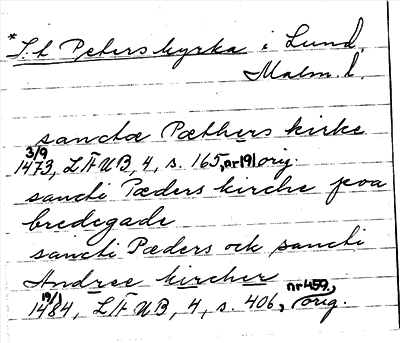 *S:t Peters kyrka i Lund,
Malm. l.
sanctæ Pæthers kirke
3/9 1473, LÄUB, 4, s. 165, nr 191 orig.
sancti Pæders kirche poa
bredegade
sancti Pæders och sancti
Andree kircher
19/1 1484, LÄUB, 4, s. 406, nr 459, orig.